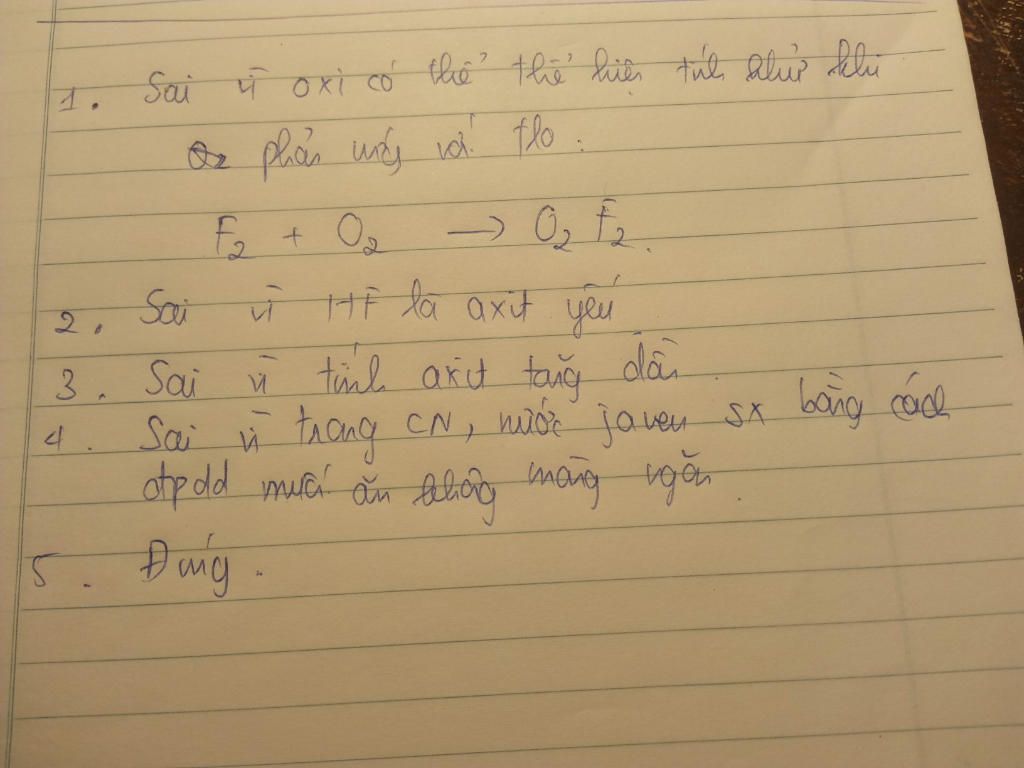 1. Sai vì oxi có thể thể hiện tính khử khi
phản ứng với flo.
F2 + O2 → O2F2.
2. Sai vì HF là axit yếu
3. Sai vì tính axit tăng dần.
4. Sai vì trong CN, nước javen sx bằng cách
đpdd muối ăn không màng ngăn.
5. Đúng.